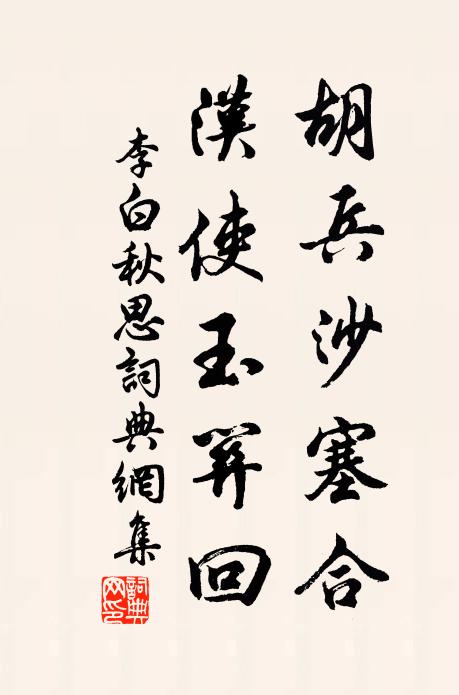 胡兵沙塞合
漢使玉關回
李白秋思詞典網集
詞典网印